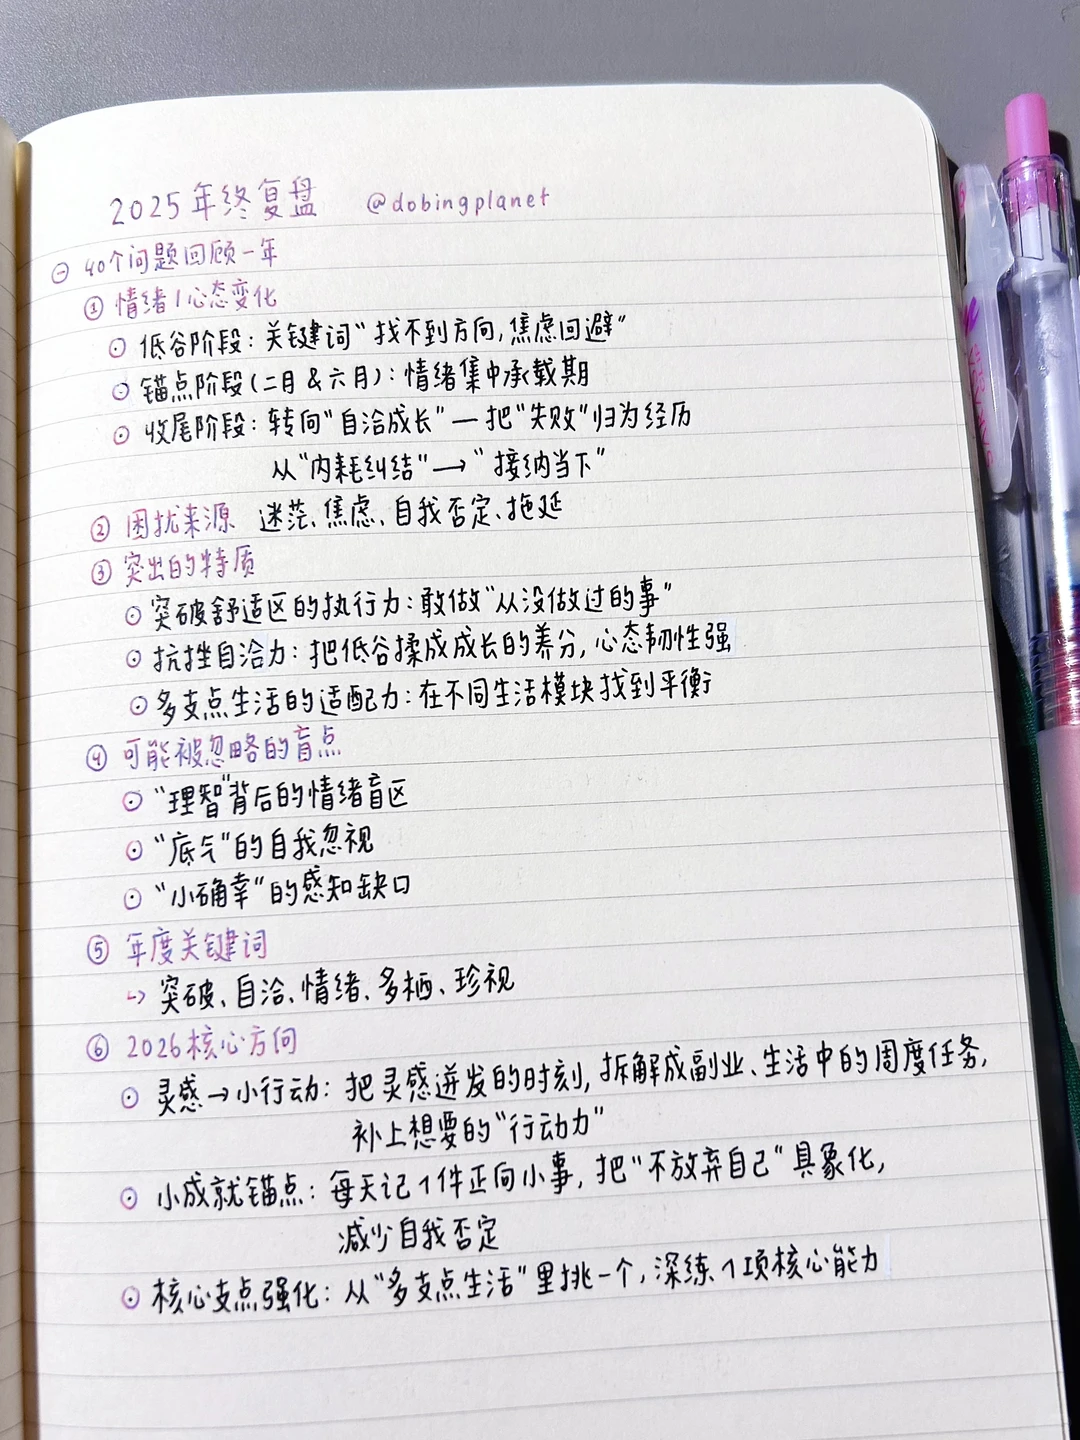 2025年终复盘 @dobingplanet
㊀ 40个问题回顾一年
① 情绪/心态变化
⊙ 低谷阶段：关键词“找不到方向，焦虑回避”
⊙ 锚点阶段（二月&六月）：情绪集中承载期
⊙ 收尾阶段：转向“自洽成长”—把“失败”归为经历
从“内耗纠结”→“接纳当下”
② 困扰来源 迷茫、焦虑、自我否定、拖延
③ 突出的特质
⊙ 突破舒适区的执行力：敢做“从没做过的事”
⊙ 抗挫自洽力：把低谷揉成成长的养分，心态韧性强
⊙ 多支点生活的适配力：在不同生活模块找到平衡
④ 可能被忽略的盲点
⊙ “理智”背后的情绪盲区
⊙ “底气”的自我忽视
⊙ “小确幸”的感知缺口
⑤ 年度关键词
↳ 突破、自洽、情绪、多栖、珍视
⑥ 2026核心方向
⊙ 灵感→小行动：把灵感迸发的时刻，拆解成副业、生活中的周度任务，
补上想要的“行动力”
⊙ 小成就锚点：每天记1件正向小事，把“不放弃自己”具象化，
减少自我否定
⊙ 核心支点强化：从“多支点生活”里挑一个，深练1项核心能力